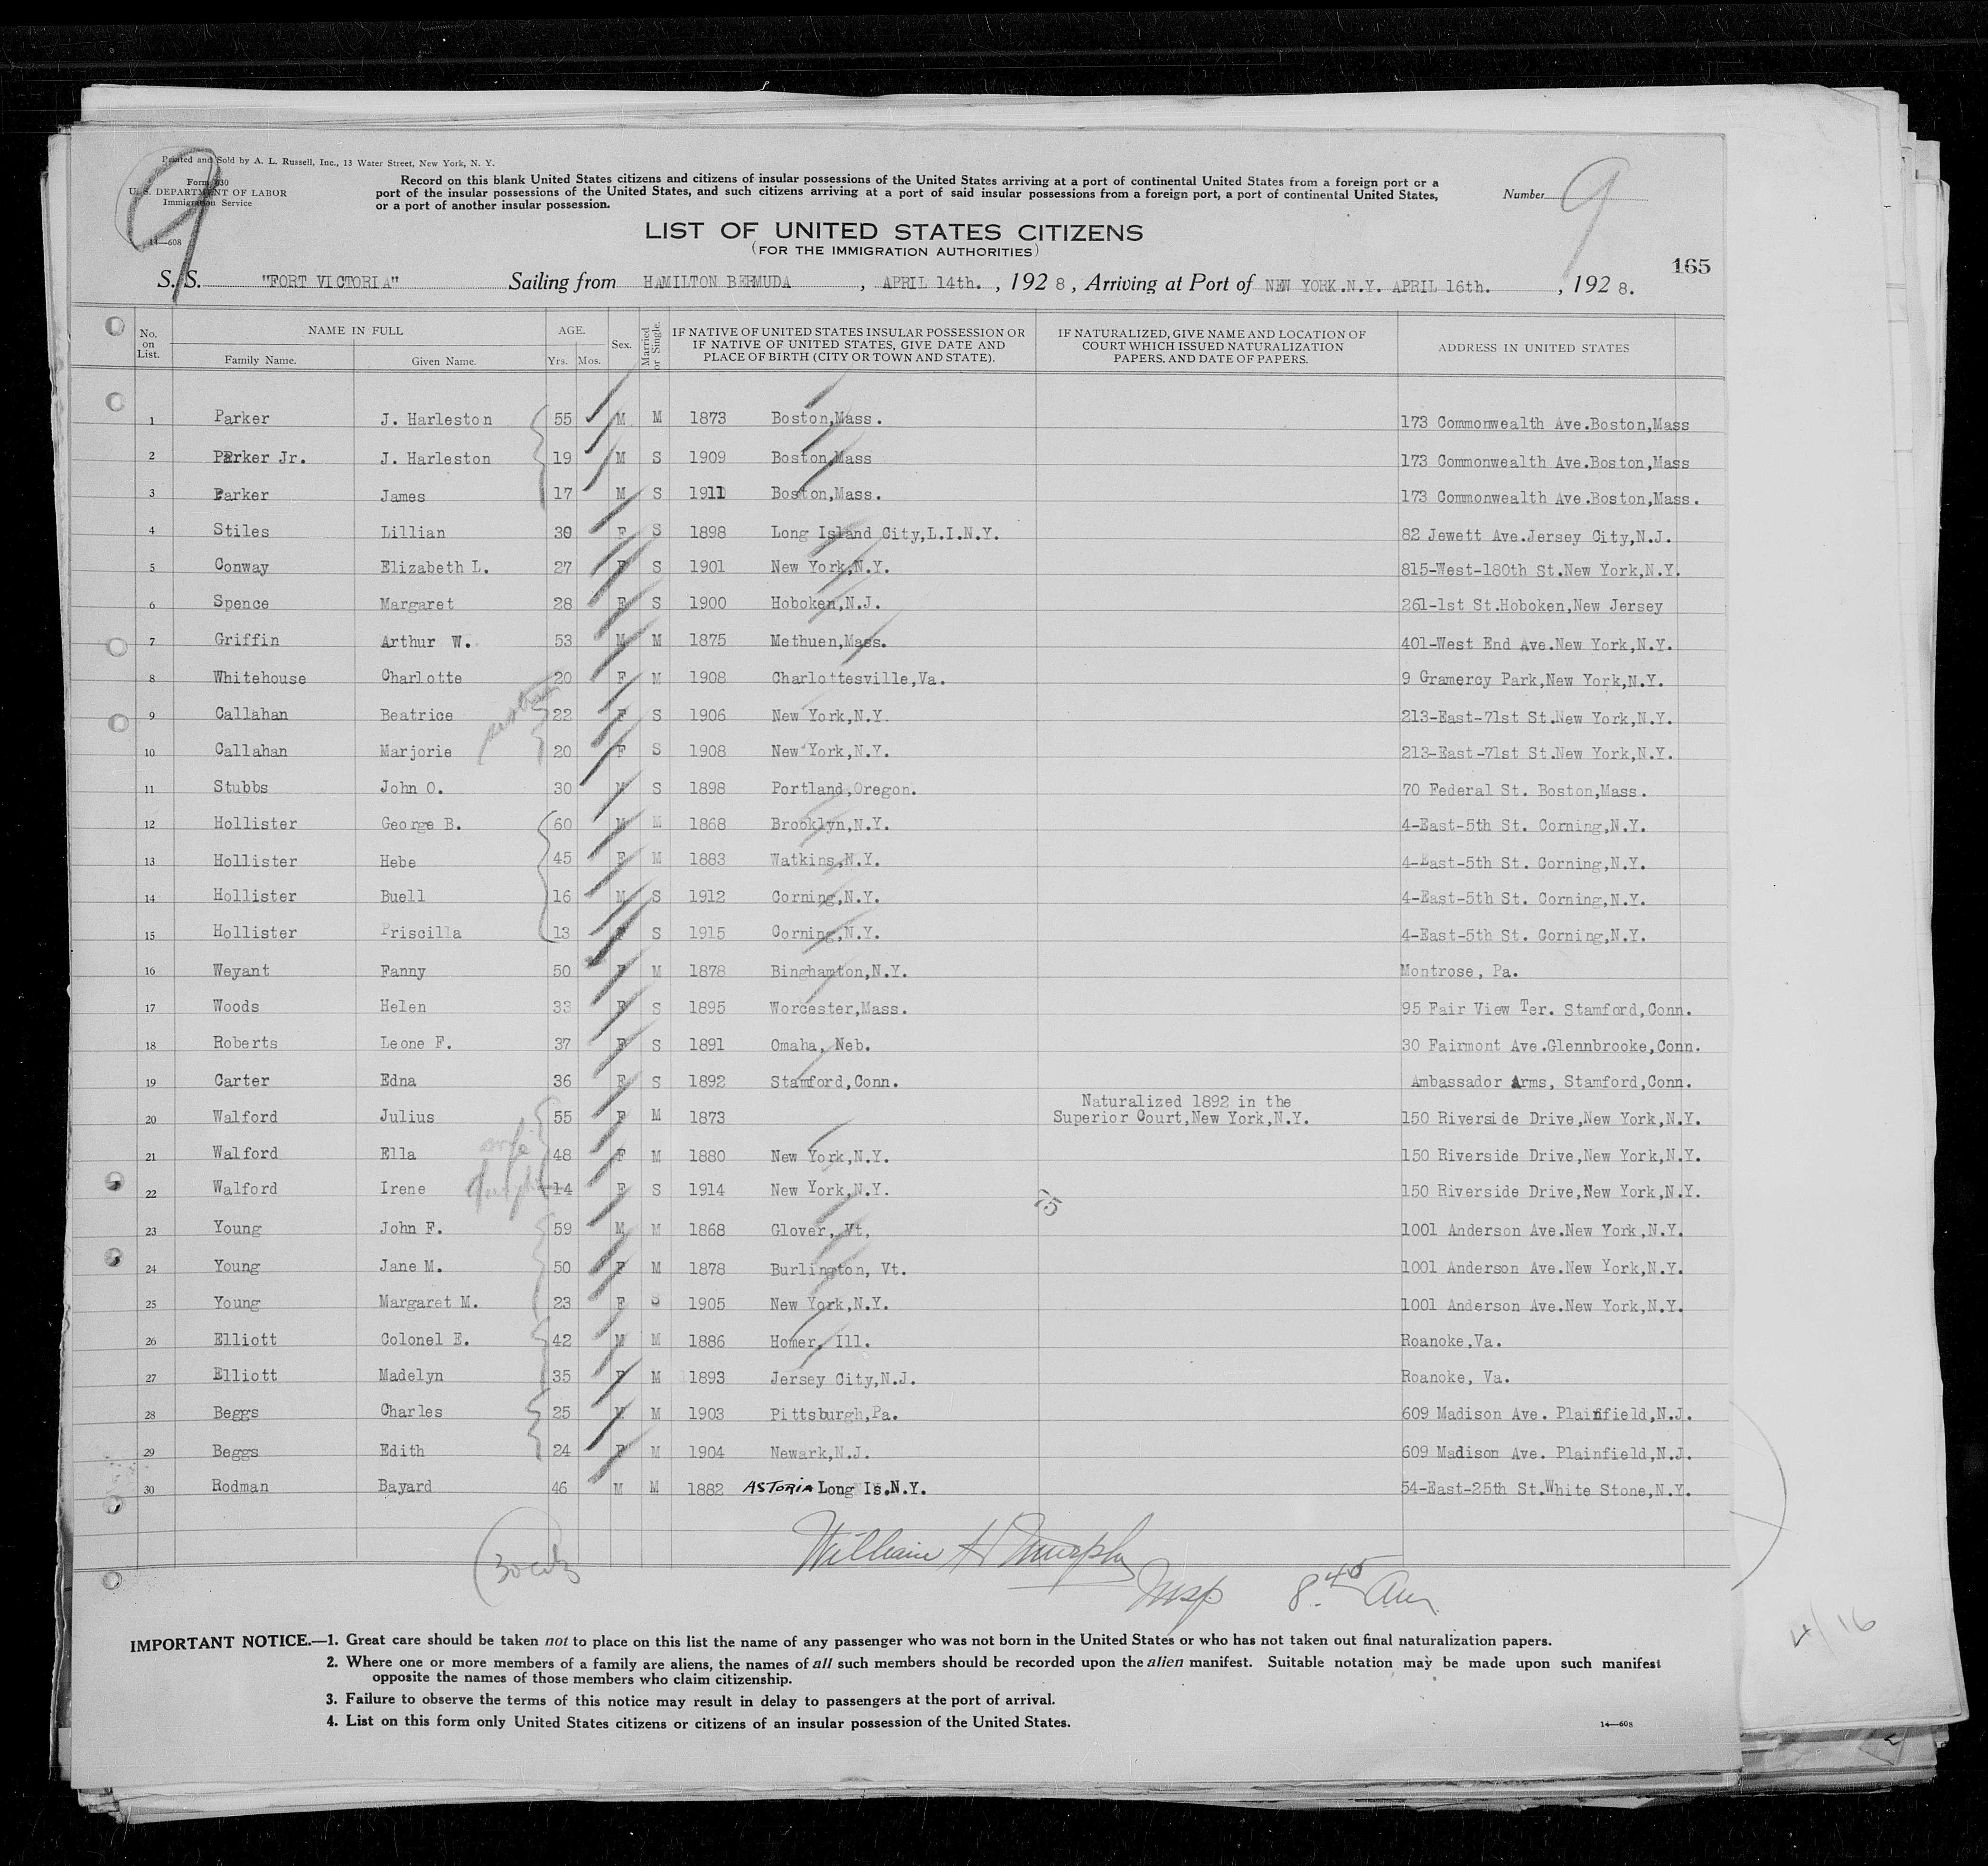 Printed and Sold by A. L. Russell, Inc., 13 Water Street, New York, N. Y.
Form 630
U. S. DEPARTMENT OF LABOR
Immigration Service
14—608
9
Record on this blank United States citizens and citizens of insular possessions of the United States arriving at a port of continental United States from a foreign port or a
port of the insular possessions of the United States, and such citizens arriving at a port of said insular possessions from a foreign port, a port of continental United States,
or a port of another insular possession.
Number 9
LIST OF UNITED STATES CITIZENS
(FOR THE IMMIGRATION AUTHORITIES)
165
S. S. "FORT VICTORIA" Sailing from HAMILTON BERMUDA, APRIL 14th., 1928, Arriving at Port of NEW YORK.N.Y. APRIL 16th., 1928.
No. on List. NAME IN FULL Family Name. Given Name. AGE. Yrs. Mos. Sex. Married or Single. IF NATIVE OF UNITED STATES INSULAR POSSESSION OR IF NATIVE OF UNITED STATES, GIVE DATE AND PLACE OF BIRTH (CITY OR TOWN AND STATE). IF NATURALIZED, GIVE NAME AND LOCATION OF COURT WHICH ISSUED NATURALIZATION PAPERS, AND DATE OF PAPERS. ADDRESS IN UNITED STATES
1 Parker J. Harleston 55 M M 1873 Boston,Mass. 173 Commonwealth Ave.Boston,Mass
2 Parker Jr. J. Harleston 19 M S 1909 Boston,Mass 173 Commonwealth Ave.Boston,Mass
3 Parker James 17 M S 1911 Boston,Mass. 173 Commonwealth Ave.Boston,Mass.
4 Stiles Lillian 30 F S 1898 Long Island City,L.I.N.Y. 82 Jewett Ave.Jersey City,N.J.
5 Conway Elizabeth L. 27 F S 1901 New York,N.Y. 815-West-180th St.New York,N.Y.
6 Spence Margaret 28 F S 1900 Hoboken,N.J. 261-1st St.Hoboken,New Jersey
7 Griffin Arthur W. 53 M M 1875 Methuen,Mass. 401-West End Ave.New York,N.Y.
8 Whitehouse Charlotte 20 F M 1908 Charlottesville,Va. 9 Gramercy Park,New York,N.Y.
9 Callahan Beatrice 22 F S 1906 New York,N.Y. 213-East-71st St.New York,N.Y.
10 Callahan Marjorie 20 F S 1908 New York,N.Y. 213-East-71st St.New York,N.Y.
11 Stubbs John O. 30 M S 1898 Portland,Oregon. 70 Federal St. Boston,Mass.
12 Hollister George B. 60 M M 1868 Brooklyn,N.Y. 4-East-5th St. Corning,N.Y.
13 Hollister Hebe 45 F M 1883 Watkins,N.Y. 4-East-5th St. Corning,N.Y.
14 Hollister Buell 16 M S 1912 Corning,N.Y. 4-East-5th St. Corning,N.Y.
15 Hollister Priscilla 13 F S 1915 Corning,N.Y. 4-East-5th St. Corning,N.Y.
16 Weyant Fanny 50 F M 1878 Binghamton,N.Y. Montrose, Pa.
17 Woods Helen 33 F S 1895 Worcester,Mass. 95 Fair View Ter. Stamford,Conn.
18 Roberts Leone F. 37 F S 1891 Omaha, Neb. 30 Fairmont Ave.Glennbrooke,Conn.
19 Carter Edna 36 F S 1892 Stamford,Conn. Ambassador Arms, Stamford,Conn.
20 Walford Julius 55 F M 1873 Naturalized 1892 in the Superior Court,New York,N.Y. 150 Riverside Drive,New York,N.Y.
21 Walford Ella wife 48 F M 1880 New York,N.Y. 150 Riverside Drive,New York,N.Y.
22 Walford Irene 14 F S 1914 New York,N.Y. 75 150 Riverside Drive,New York,N.Y.
23 Young John F. 59 M M 1868 Glover, Vt, 1001 Anderson Ave.New York,N.Y.
24 Young Jane M. 50 F M 1878 Burlington, Vt. 1001 Anderson Ave.New York,N.Y.
25 Young Margaret M. 23 F S 1905 New York,N.Y. 1001 Anderson Ave.New York,N.Y.
26 Elliott Colonel E. 42 M M 1886 Homer, Ill. Roanoke,Va.
27 Elliott Madelyn 35 F M 1893 Jersey City,N.J. Roanoke, Va.
28 Beggs Charles 25 M M 1903 Pittsburgh,Pa. 609 Madison Ave. Plainfield,N.J.
29 Beggs Edith 24 F M 1904 Newark,N.J. 609 Madison Ave. Plainfield,N.J.
30 Rodman Bayard 46 M M 1882 ASTORIA Long Is.N.Y. 54-East-25th St.White Stone,N.Y.
William H Murphy
Insp 8.45 Am
4/16
IMPORTANT NOTICE.—1. Great care should be taken not to place on this list the name of any passenger who was not born in the United States or who has not taken out final naturalization papers.
2. Where one or more members of a family are aliens, the names of all such members should be recorded upon the alien manifest. Suitable notation may be made upon such manifest
opposite the names of those members who claim citizenship.
3. Failure to observe the terms of this notice may result in delay to passengers at the port of arrival.
4. List on this form only United States citizens or citizens of an insular possession of the United States.
14—608